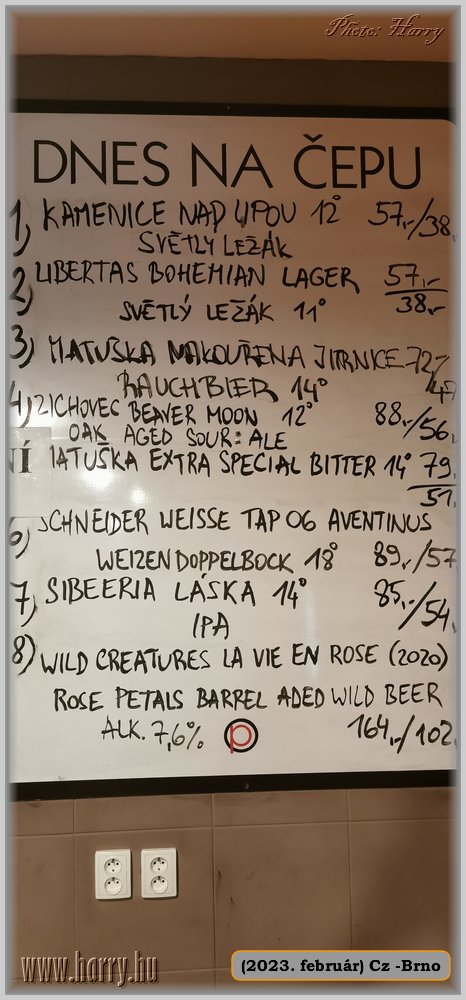 Photo: Harry
DNES NA ČEPU
1, KAMENICE NAD LIPOU 12° 57,-/38,
SVĚTLÝ LEŽÁK
2) LIBERTAS BOHEMIAN LAGER 57,-
SVĚTLÝ LEŽÁK 11° 38,-
3) MATUŠKA NAKOUŘENA JITRNICE 72,-
RAUCHBIER 14° 47
4) ZICHOVEC BEAVER MOON 12° 88,-/56,
OAK AGED SOUR: ALE
NÍ MATUŠKA EXTRA SPECIAL BITTER 14° 79,
51,
6) SCHNEIDER WEISSE TAP 06 AVENTINUS
WEIZENDOPPELBOCK 18° 89,-/57
7, SIBEERIA LÁSKA 14° 85,-/54,
IPA
8) WILD CREATURES LA VIE EN ROSE (2020)
ROSE PETALS BARREL ADED WILD BEER
ALK. 7,6% 164,-/102,
www.harry.hu
(2023. február) Cz -Brno